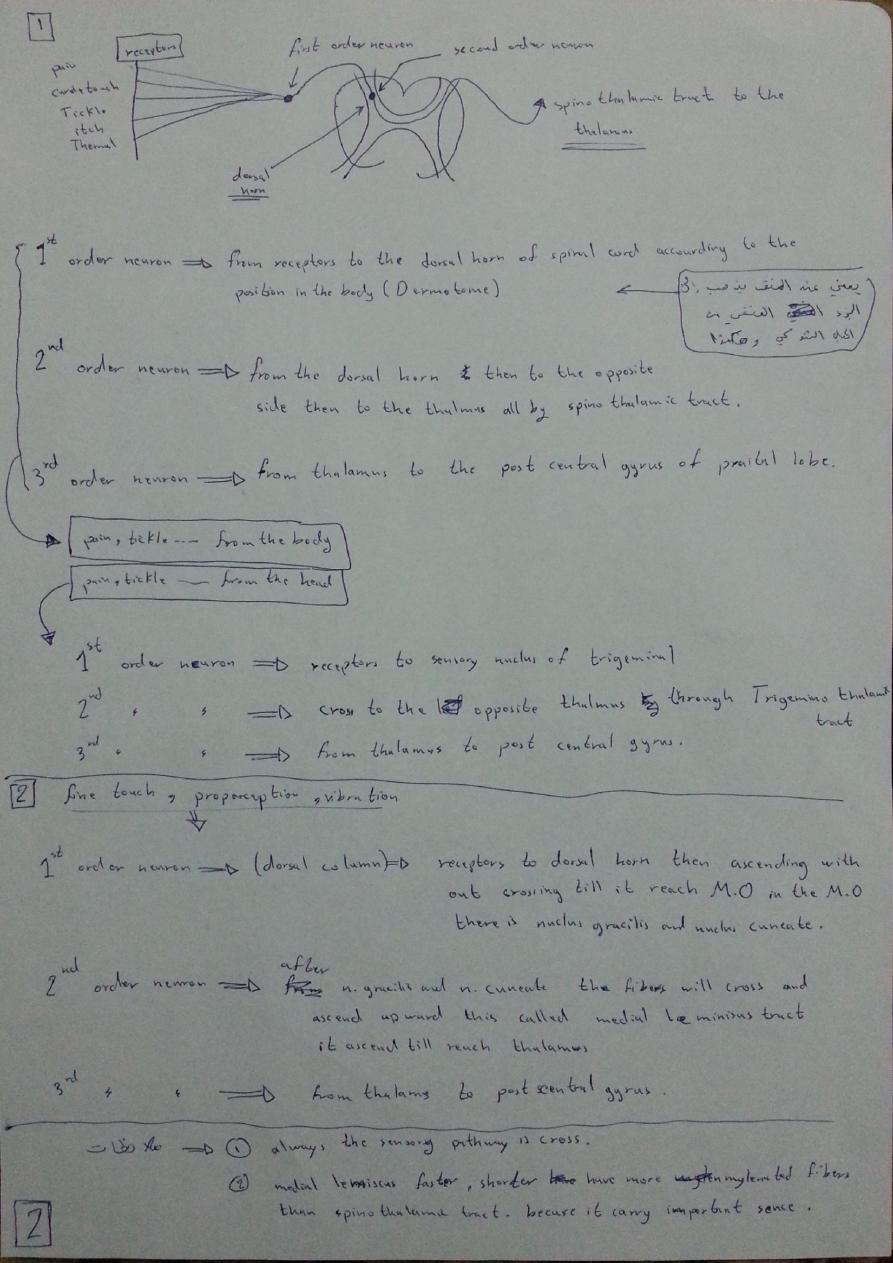 1
receptors
first order neuron
second order neuron
pain
crude touch
Tickle
itch
Thermal
spino thalamic tract to the
thalamus
dorsal
horn
1st order neuron ⇒ from receptors to the dorsal horn of spinal cord accourding to the
position in the body (Dermotome)
يعني عند العنق يذهب
الجزء العنقي من
الحبل الشوكي وهكذا
2nd order neuron ⇒ from the dorsal horn then to the opposite
side then to the thulmus all by spino thalamic tract.
3rd order neuron ⇒ from thalamus to the post central gyrus of praital lobe.
pain, tickle --- from the body
pain, tickle — from the head
1st order neuron ⇒ receptors to sensory nuclus of trigeminal
2nd " " ⇒ cross to the opposite thalmus through Trigemino thalamt
tract
3rd " " ⇒ from thalamus to post central gyrus.
2 fine touch, properception, vibration
1st order neuron ⇒ (dorsal column) ⇒ receptors to dorsal horn then ascending with
out crossing till it reach M.O in the M.O
there is nuclus gracilis and nuclus cuneate.
2nd order neuron ⇒ after n. gracilis and n. cuneate the fibers will cross and
ascend upward this called medial leminisus tract
it ascend till reach thalamus
3rd " " ⇒ from thalams to post central gyrus.
ملاحظات ⇒ ① always the sensory pathway is cross.
② medial lemniscus faster, shorter have more mylenated fibers
than spinothalamic tract. becure it carry important sence.
2